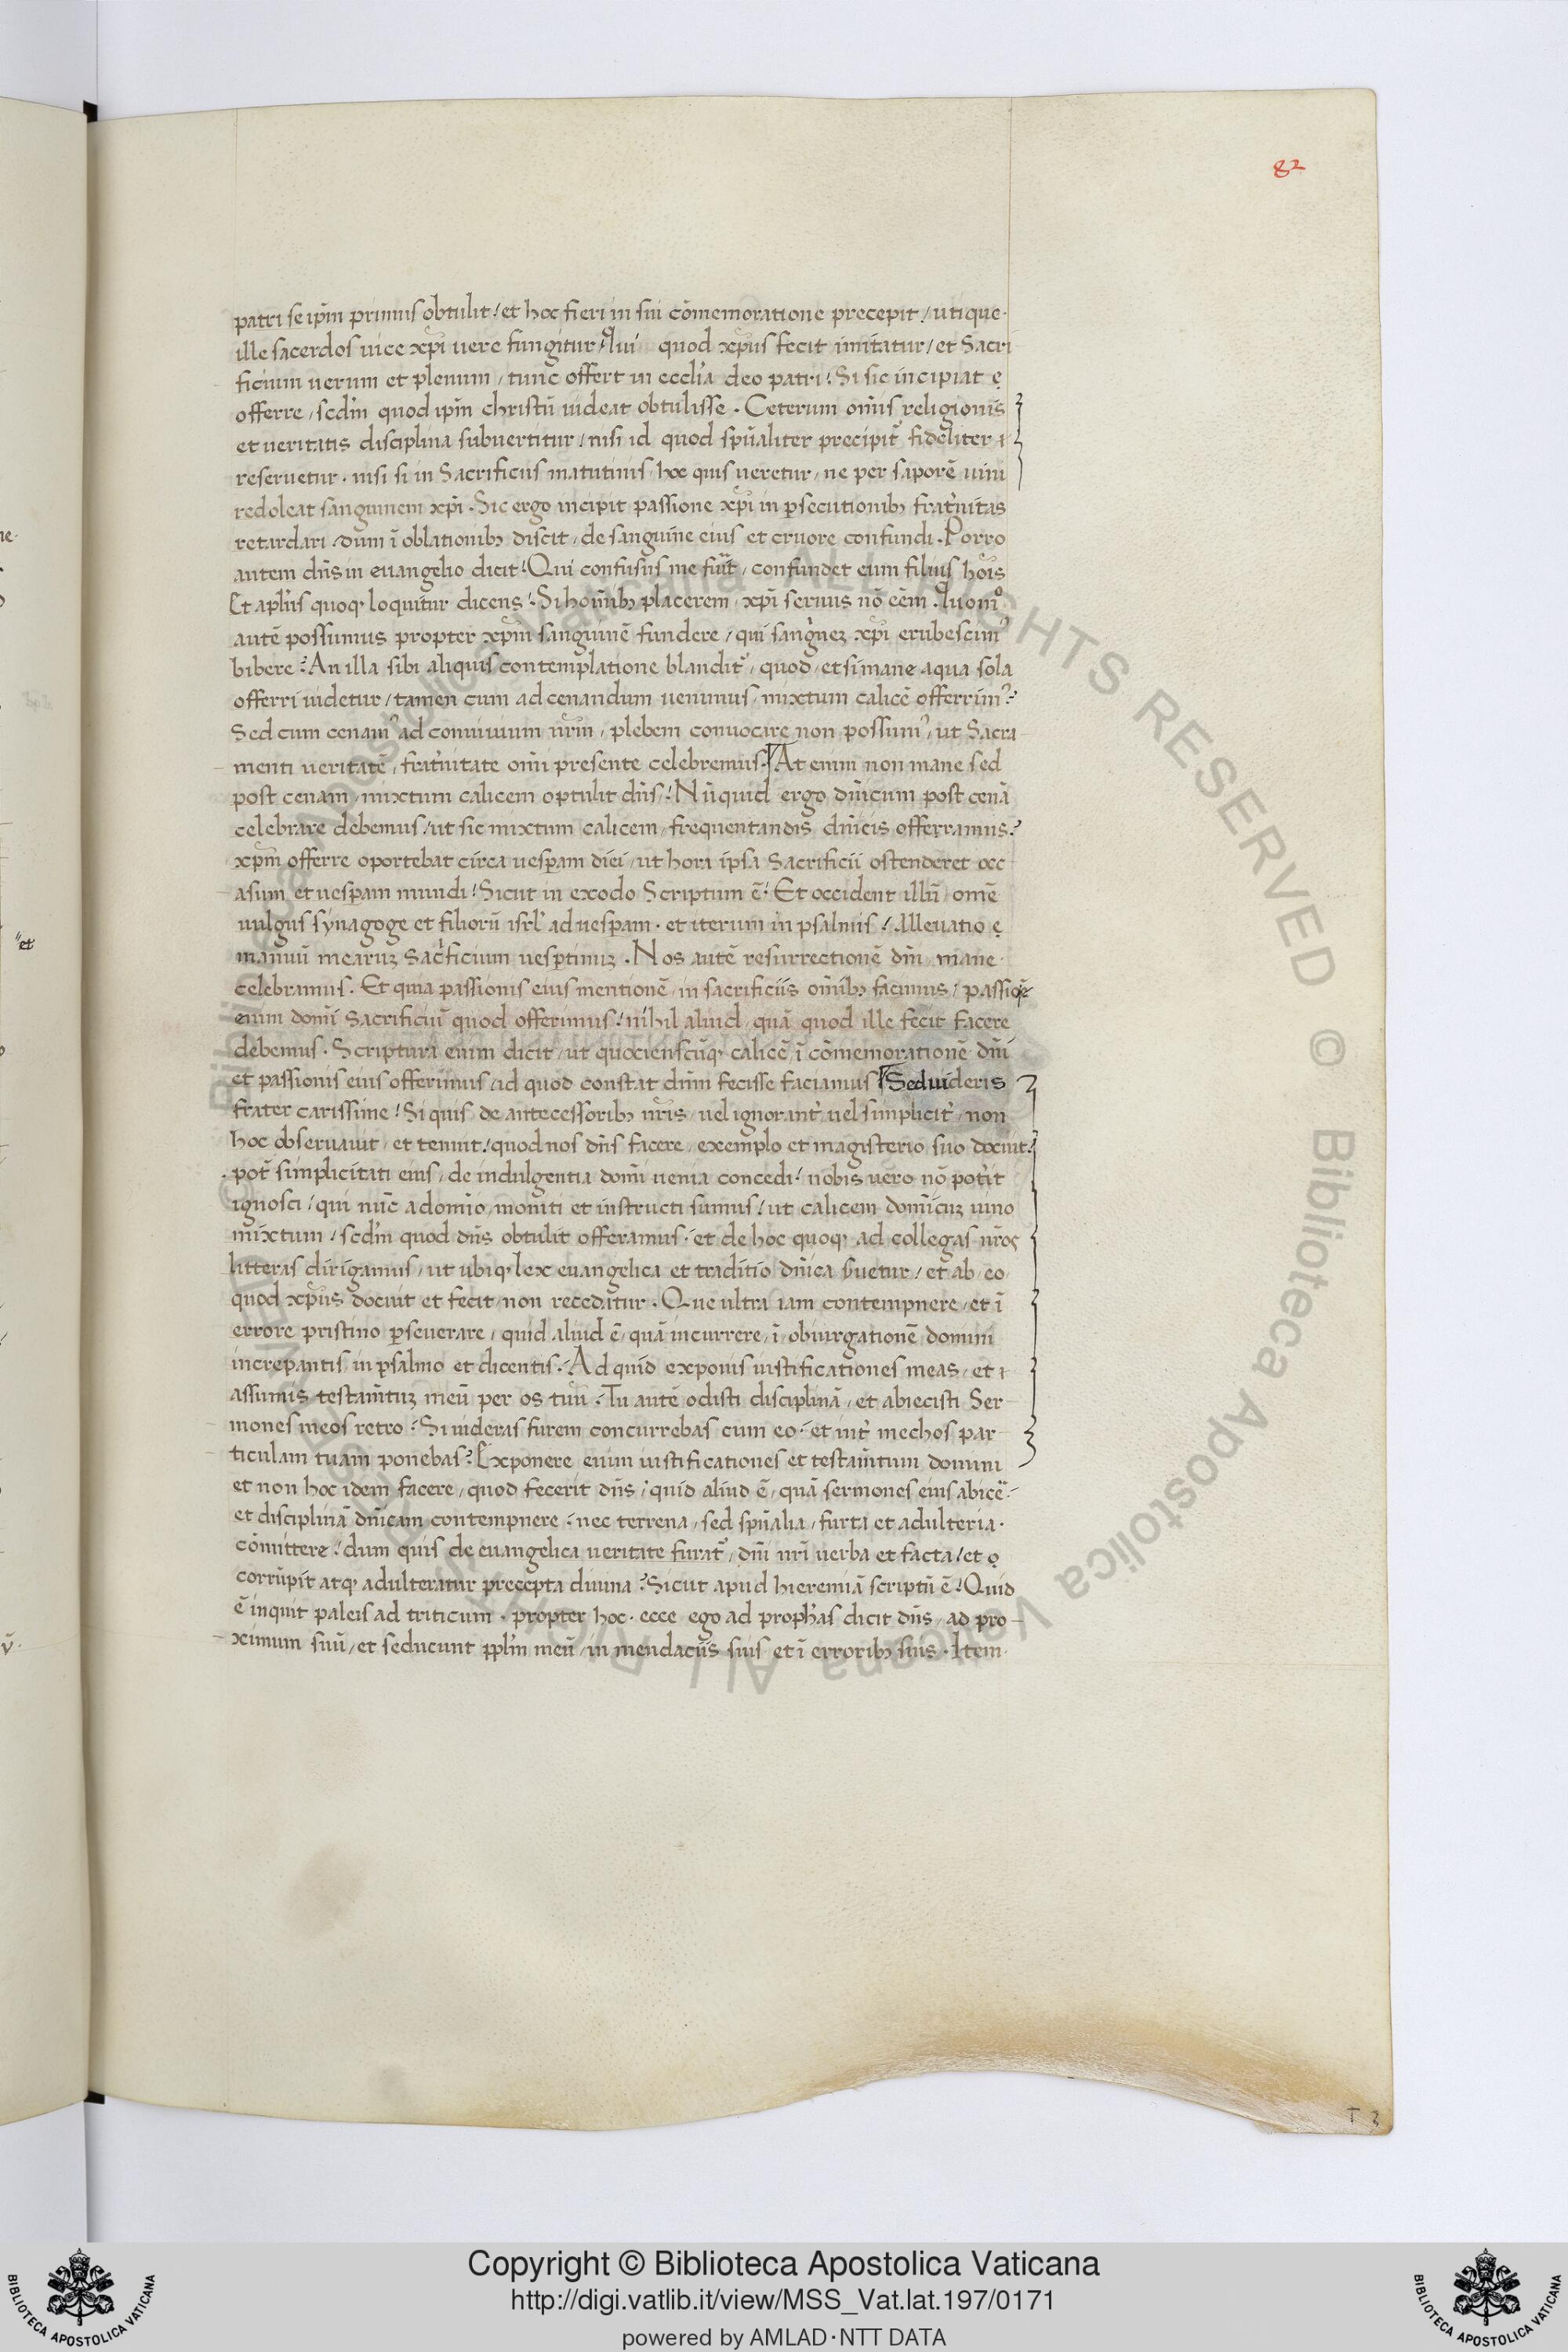 82
patri se ip̄m primus obtulit / et hoc fieri in sui cōmemoratione precepit / utique
ille sacerdos uice xp̄i uere fungitur / qui quod xp̄us fecit imitatur / et Sacri
ficium uerum et plenum / tunc offert in eccl̄ia deo patri / Si sic incipiat
offerre / scd̄m quod ip̄m christū uideat obtulisse . Ceterum om̄is religionis
et ueritatis disciplina subuertitur / nisi id quod spūaliter precipit᷑ fideliter
reseruetur . nisi si in Sacrificiis matutinis hoc quis ueretur / ne per saporē uini
redoleat sanguinem xp̄i . Sic ergo incipit passione xp̄i in ꝑsecutionibꝫ frat̄nitas
retardari / dum ī oblationibꝫ discit / de sanguine eius et cruore confundi . Porro
autem dn̄s in euangelio dicit / Qui confusus me fūit / confundet eum filius hoīs
Et apl̄us quoqꝫ loquitur dicens / Si hoīnibꝫ placerem / xp̄i seruus nō eēm . Quom̊
autē possumus propter xp̄m sanguinē fundere / qui sanguineꝫ xp̄i erubescimꝰ
bibere ? An illa sibi aliquis contemplatione blandit᷑ / quod / etsi mane aqua sola
offerri uidetur / tamen cum ad cenandum uenimus / mixtum calicē offerrimꝰ ?
Sed cum cenamꝰ ad conuiuium nr̄m / plebem conuocare non possumꝰ / ut Sacra
menti ueritatē / frat̄nitate om̄i presente celebremus . At enim non mane sed
post cenam / mixtum calicem optulit dn̄s / Nūquid ergo dn̄icum post cenā
celebrare debemus / ut sic mixtum calicem / frequentandis dn̄icis offerramus ?
xp̄m offerre oportebat circa uesꝑam diei / ut hora ipsa Sacrificii ostenderet occ
asum et uesꝑam mundi / Sicut in exodo Scriptum ē / Et occident illū omē
uulgus synagoge et filiorū isrl̄ ad uesꝑam . et iterum in psalmis / Alleuatio
manuū mearuꝫ Sacrificium uesꝑtinuꝫ . Nos autē resurrectionē dn̄i mane
celebramus . Et quia passionis eius mentionē in sacrificiis om̄ibꝫ facimus / passio
enim domī Sacrificiū quod offerimus / nihil aliud / quā quod ille fecit facere
debemus . Scriptura enim dicit / ut quocienscūqꝫ calicē ī cōmemorationē dn̄i
et passionis eius offerimus / id quod constat dn̄m fecisse faciamus Sed uideris
frater carissime / Si quis de antecessoribꝫ nr̄is / uel ignorant̄ uel simplicit̄ / non
hoc obseruauit / et tenuit / quod nos dn̄s facere / exemplo et magisterio suo docuit /
pot̄ simplicitati eius / de indulgentia domī uenia concedi / nobis uero nō pot̄it
ignosci / qui nūc a domīo moniti et instructi sumus / ut calicem domīcuꝫ uino
mixtum / scd̄m quod dn̄s obtulit offeramus / et de hoc quoqꝫ ad collegas nr̄os
litteras dirigamus / ut ubiqꝫ lex euangelica et traditio dn̄ica s̄uetur / et ab eo
quod xp̄us docuit et fecit / non recedatur . Que ultra iam contempnere / et ī
errore pristino ꝑseuerare / quid aliud ē / quā incurrere / ī obiurgationē domini
increpantis in psalmo et dicentis / Ad quid exponis iustificationes meas / et
assumis testam̄tuꝫ meū per os tuū / Tu autē odisti disciplinā / et abiecisti Ser
mones meos retro / Si uideras furem concurrebas cum eo / et int̄ mechos par
ticulam tuam ponebas ? Exponere enim iustificationes et testam̄tum domini
et non hoc idem facere / quod fecerit dn̄s / quid aliud ē / quā sermones eius abicē
et disciplinā dn̄icam contempnere / nec terrena / sed spūalia / furta et adulteria .
cōmittere / dum quis de euangelica ueritate furat᷑ / dn̄i nr̄i uerba et facta / et
corrūpit atqꝫ adulteratur precepta diuina ? Sicut apud hieremiā scriptū ē / Quid
ē inquit paleis ad triticum . propter hoc . ecce ego ad prophꝫas dicit dn̄s / ad pro
ximum suū / et seducunt ppl̄m meū / in mendaciis suis et ī erroribꝫ suis . Item
et
Copyright © Biblioteca Apostolica Vaticana
http://digi.vatlib.it/view/MSS_Vat.lat.197/0171
powered by AMLAD·NTT DATA
BIBLIOTECA APOSTOLICA VATICANA
BIBLIOTECA APOSTOLICA VATICANA